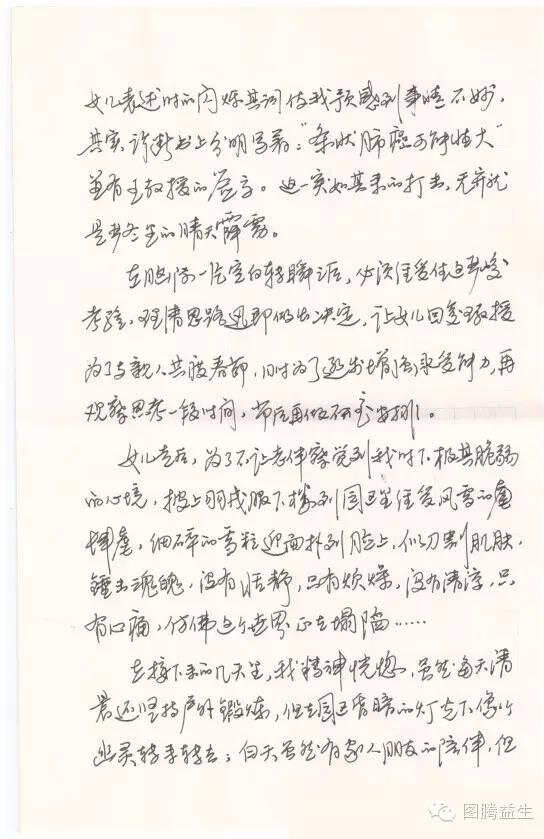 女儿表述时的闪烁其词使我预感到事情不妙,
其实诊断书上分明写着:“条状肺癌可能性大”
并有王教授的签字。这一突如其来的打击,无异就
是寒冬里的晴天霹雳。
在脑际一片空白转瞬之后,必须经受住这严峻
考验,理清思路迅即做出决定,让女儿回复王教授
为了与亲人共渡春节,同时为了逐步增强承受能力,再
观察思考一段时间,节后再做研究安排。
女儿走后,为了不让老伴察觉到我时下极其脆弱
的心境,披上羽戎服下楼到园里经受风雪的
细碎的雪粒迎面扑到脸上,似刀割肌肤,
锤击魂魄,没有恬静,只有烦燥,没有清淳,只
有心痛,仿佛这个世界正在塌陷……
在接下来的几天里,我精神恍惚,虽然每天清
晨还坚持户外锻炼,但在园里昏暗的灯光下像个
幽灵转来转去;白天虽然有家人朋友的陪伴,但
图腾益生